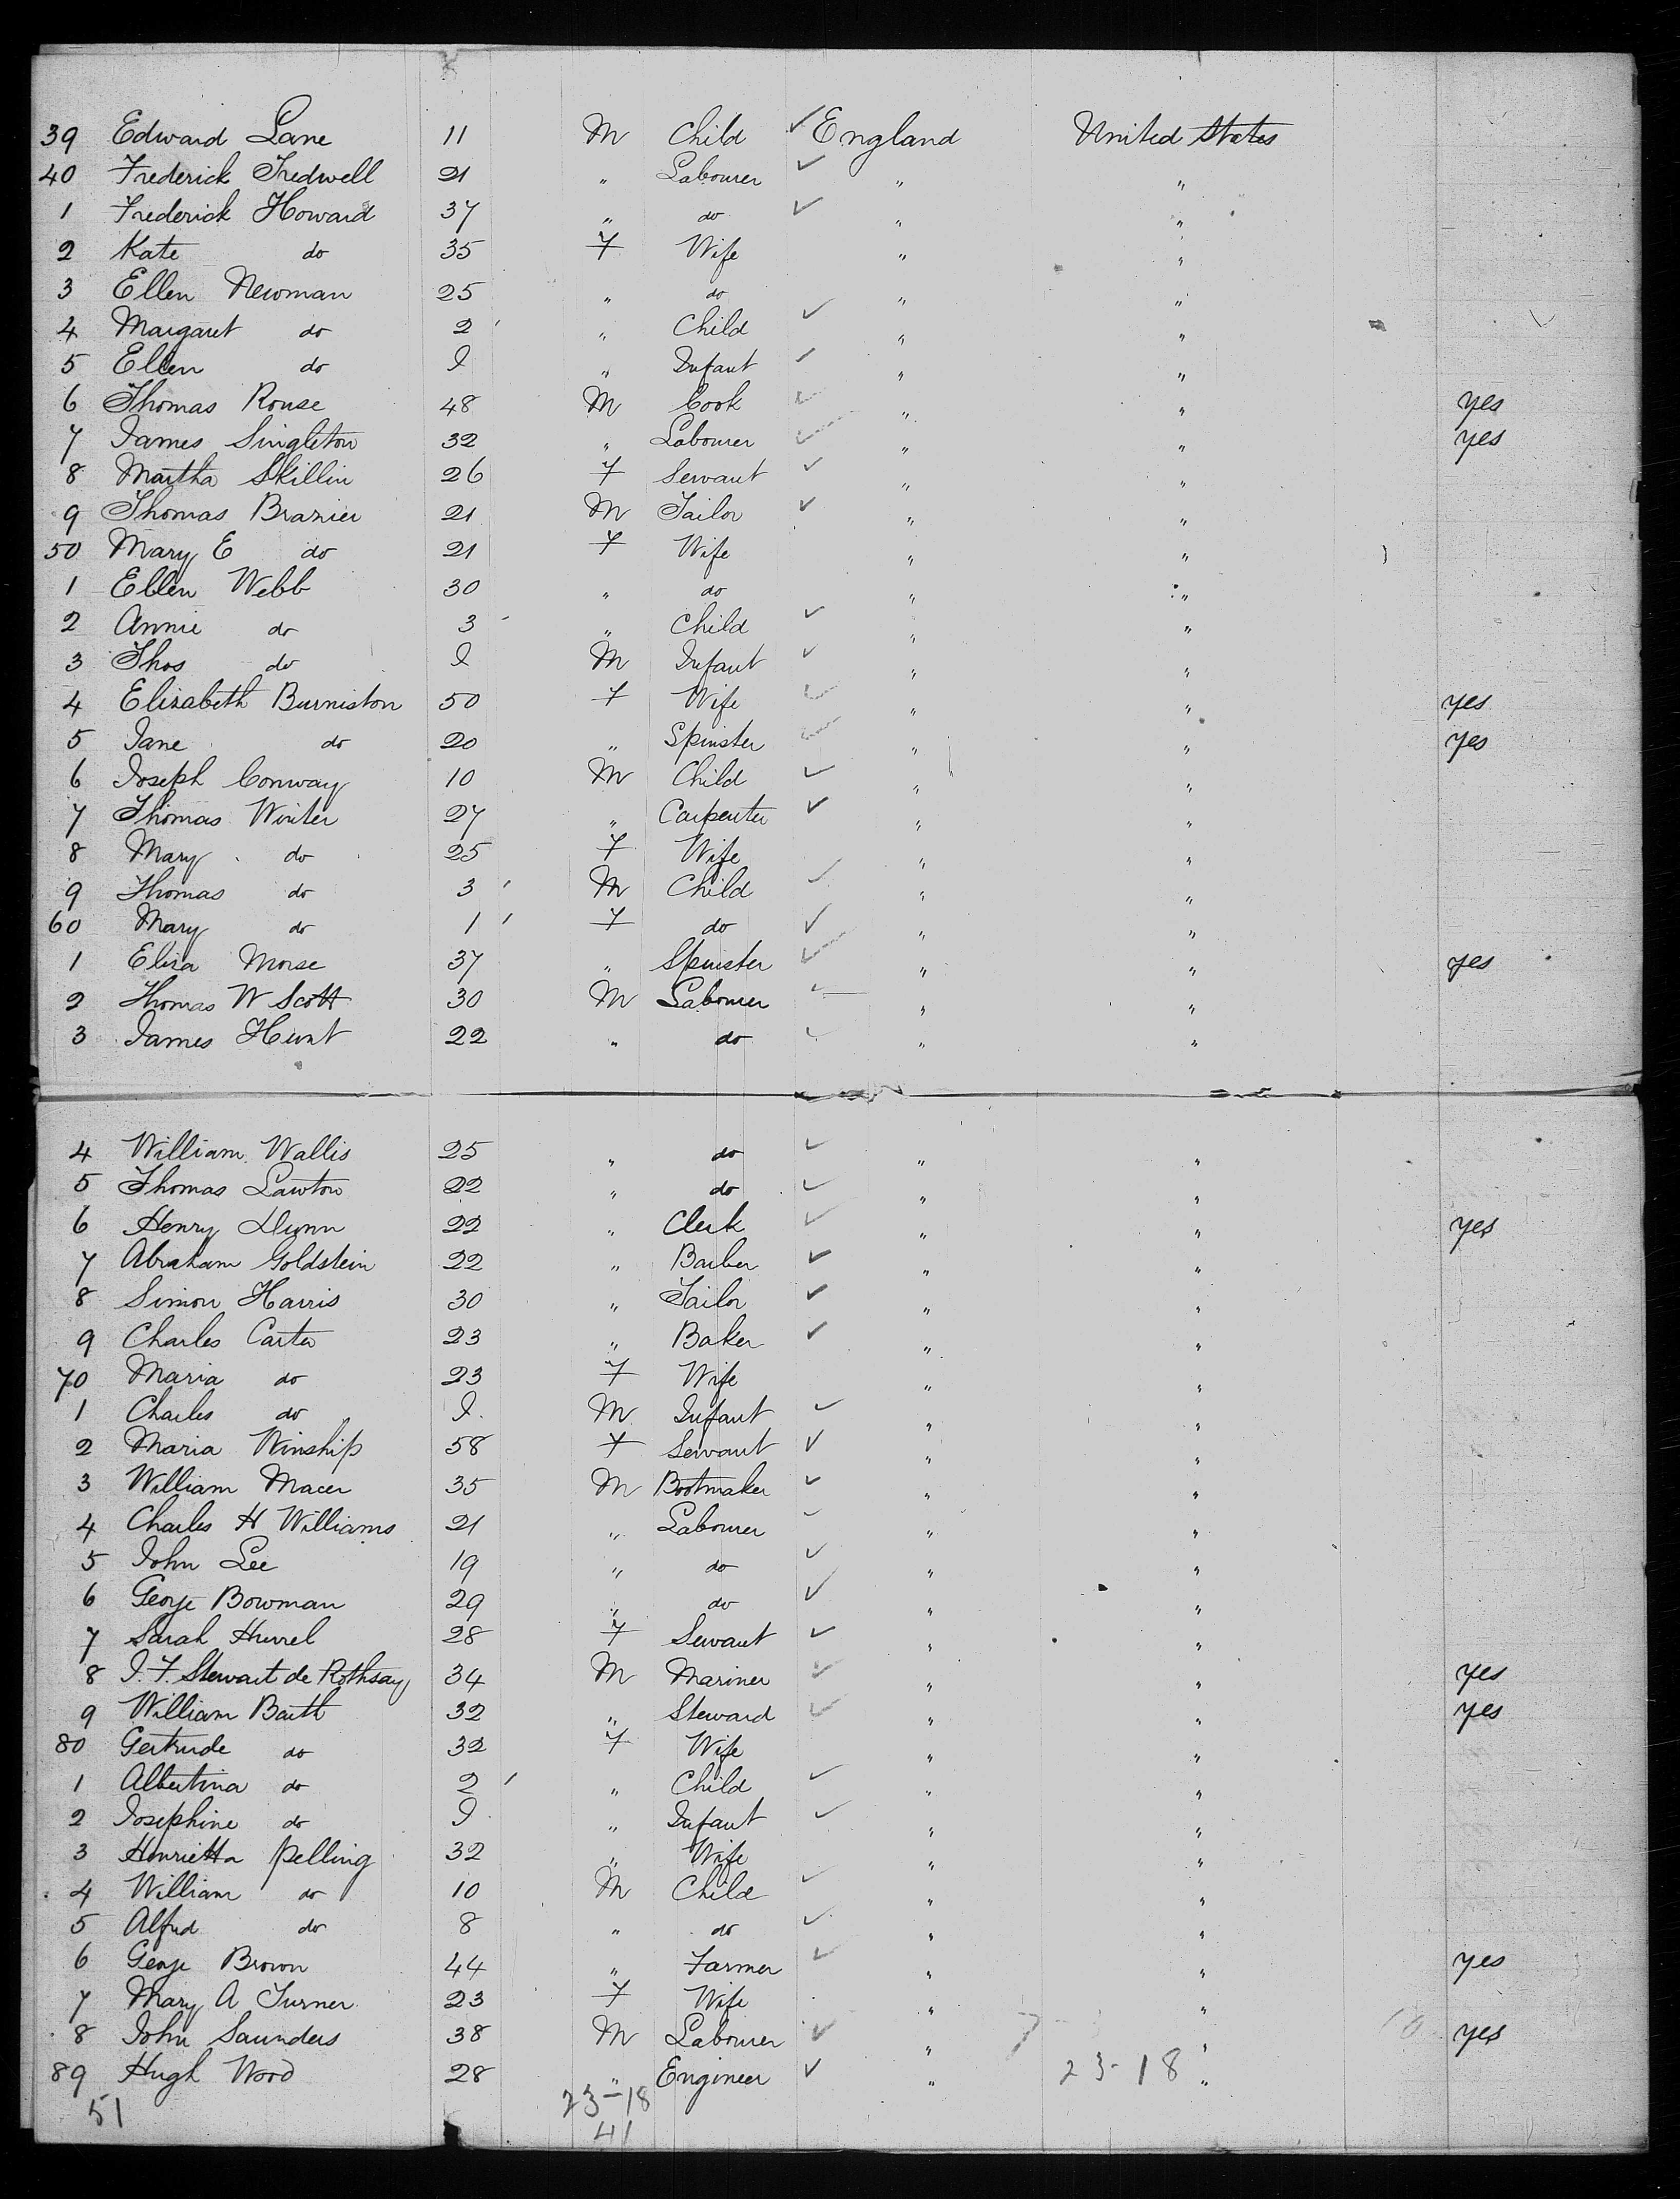 39 Edward Lane 11 M Child ✓ England United States
40 Frederick Tredwell 21 " Labourer ✓ " "
1 Frederick Howard 37 " do ✓ " "
2 Kate do 35 F Wife " "
3 Ellen Newman 25 " do " "
4 Margaret do 2 " Child ✓ " "
5 Ellen do I " Infant ✓ " "
6 Thomas Rouse 48 M Cook ✓ " " yes
7 James Singleton 32 " Labourer ✓ " " yes
8 Martha Skillin 26 F Servant ✓ " "
9 Thomas Brazier 21 M Tailor ✓ " "
50 Mary E do 21 F Wife " "
1 Ellen Webb 30 " do " "
2 Annie do 3 " Child ✓ " "
3 Thos do I M Infant ✓ " "
4 Elizabeth Burniston 50 F Wife ✓ " " yes
5 Jane do 20 " Spinster ✓ " " yes
6 Joseph Conway 10 M Child ✓ " "
7 Thomas Winter 27 " Carpenter ✓ " "
8 Mary do 25 F Wife " "
9 Thomas do 3 M Child ✓ " "
60 Mary do 1 F do ✓ " "
1 Eliza Morse 37 " Spinster ✓ " " yes
2 Thomas W Scott 30 M Labourer ✓ " "
3 James Hunt 22 " do ✓ " "
4 William Wallis 25 " do ✓ " "
5 Thomas Lawton 22 " do ✓ " "
6 Henry Dunn 22 " Clerk ✓ " " yes
7 Abraham Goldstein 22 " Barber ✓ " "
8 Simon Harris 30 " Tailor ✓ " "
9 Charles Carter 23 " Baker ✓ " "
70 Maria do 23 F Wife " "
1 Charles do I M Infant ✓ " "
2 Maria Winship 58 F Servant ✓ " "
3 William Macer 35 M Bootmaker ✓ " "
4 Charles H Williams 21 " Labourer ✓ " "
5 John Lee 19 " do ✓ " "
6 George Bowman 29 " do ✓ " "
7 Sarah Hurrel 28 F Servant ✓ " "
8 J. F. Stewart de Rothsay 34 M Mariner ✓ " " yes
9 William Barth 32 " Steward ✓ " " yes
80 Gertrude do 32 F Wife " "
1 Albertina do 2 " Child ✓ " "
2 Josephine do I " Infant ✓ " "
3 Henrietta Pelling 32 " Wife " "
4 William do 10 M Child ✓ " "
5 Alfred do 8 " do ✓ " "
6 George Brown 44 " Farmer ✓ " " yes
7 Mary A Turner 23 F Wife " "
8 John Saunders 38 M Labourer ✓ " " yes
89 Hugh Wood 28 " Engineer ✓ " 23-18 "
51 23-18
41